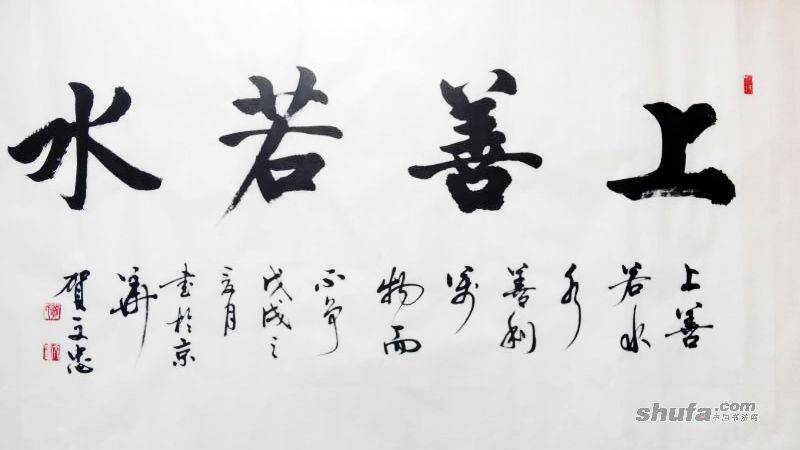 上善若水
上善
若水
水
善利
万
物而
不争
戊戌之
三月
书於京
华
贺文忠
shufa.com
中国书法网